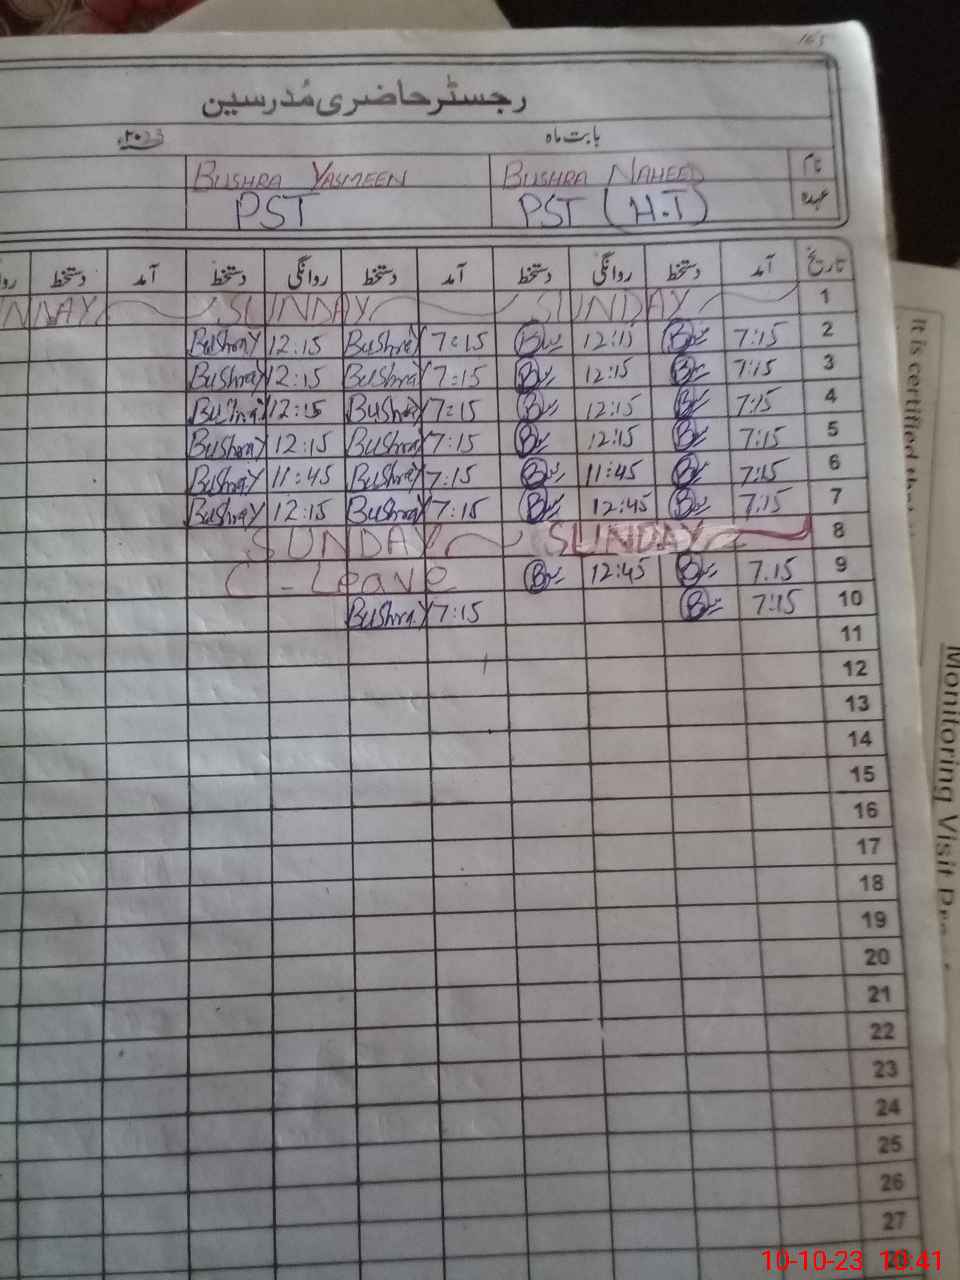 165
رجسٹر حاضری مُدرسین
بابت ماہ ۲۰23ء
نام BUSHRA NAHEED BUSHRA YASMEEN
عہدہ PST (H.T) PST
تاریخ آمد دستخط روانگی دستخط آمد دستخط روانگی دستخط آمد دستخط روا
1 SUNDAY SUNDAY NDAY
2 7:15 B 12:15 B 7:15 BushraY 12:15 BushraY
3 7:15 B 12:15 B 7:15 BushraY 12:15 BushraY
4 7:15 B 12:15 B 7:15 BushraY 12:15 BushraY
5 7:15 B 12:15 B 7:15 BushraY 12:15 BushraY
6 7:15 B 11:45 B 7:15 BushraY 11:45 BushraY
7 7.15 B 12:45 B 7:15 BushraY 12:15 BushraY
8 SUNDAY SUNDAY
9 7.15 B 12:45 B C-Leave
10 7:15 B 7:15 BushraY
11
12
13
14
15
16
17
18
19
20
21
22
23
24
25
26
27
It is certified that
Monitoring Visit
10-10-23 10:41